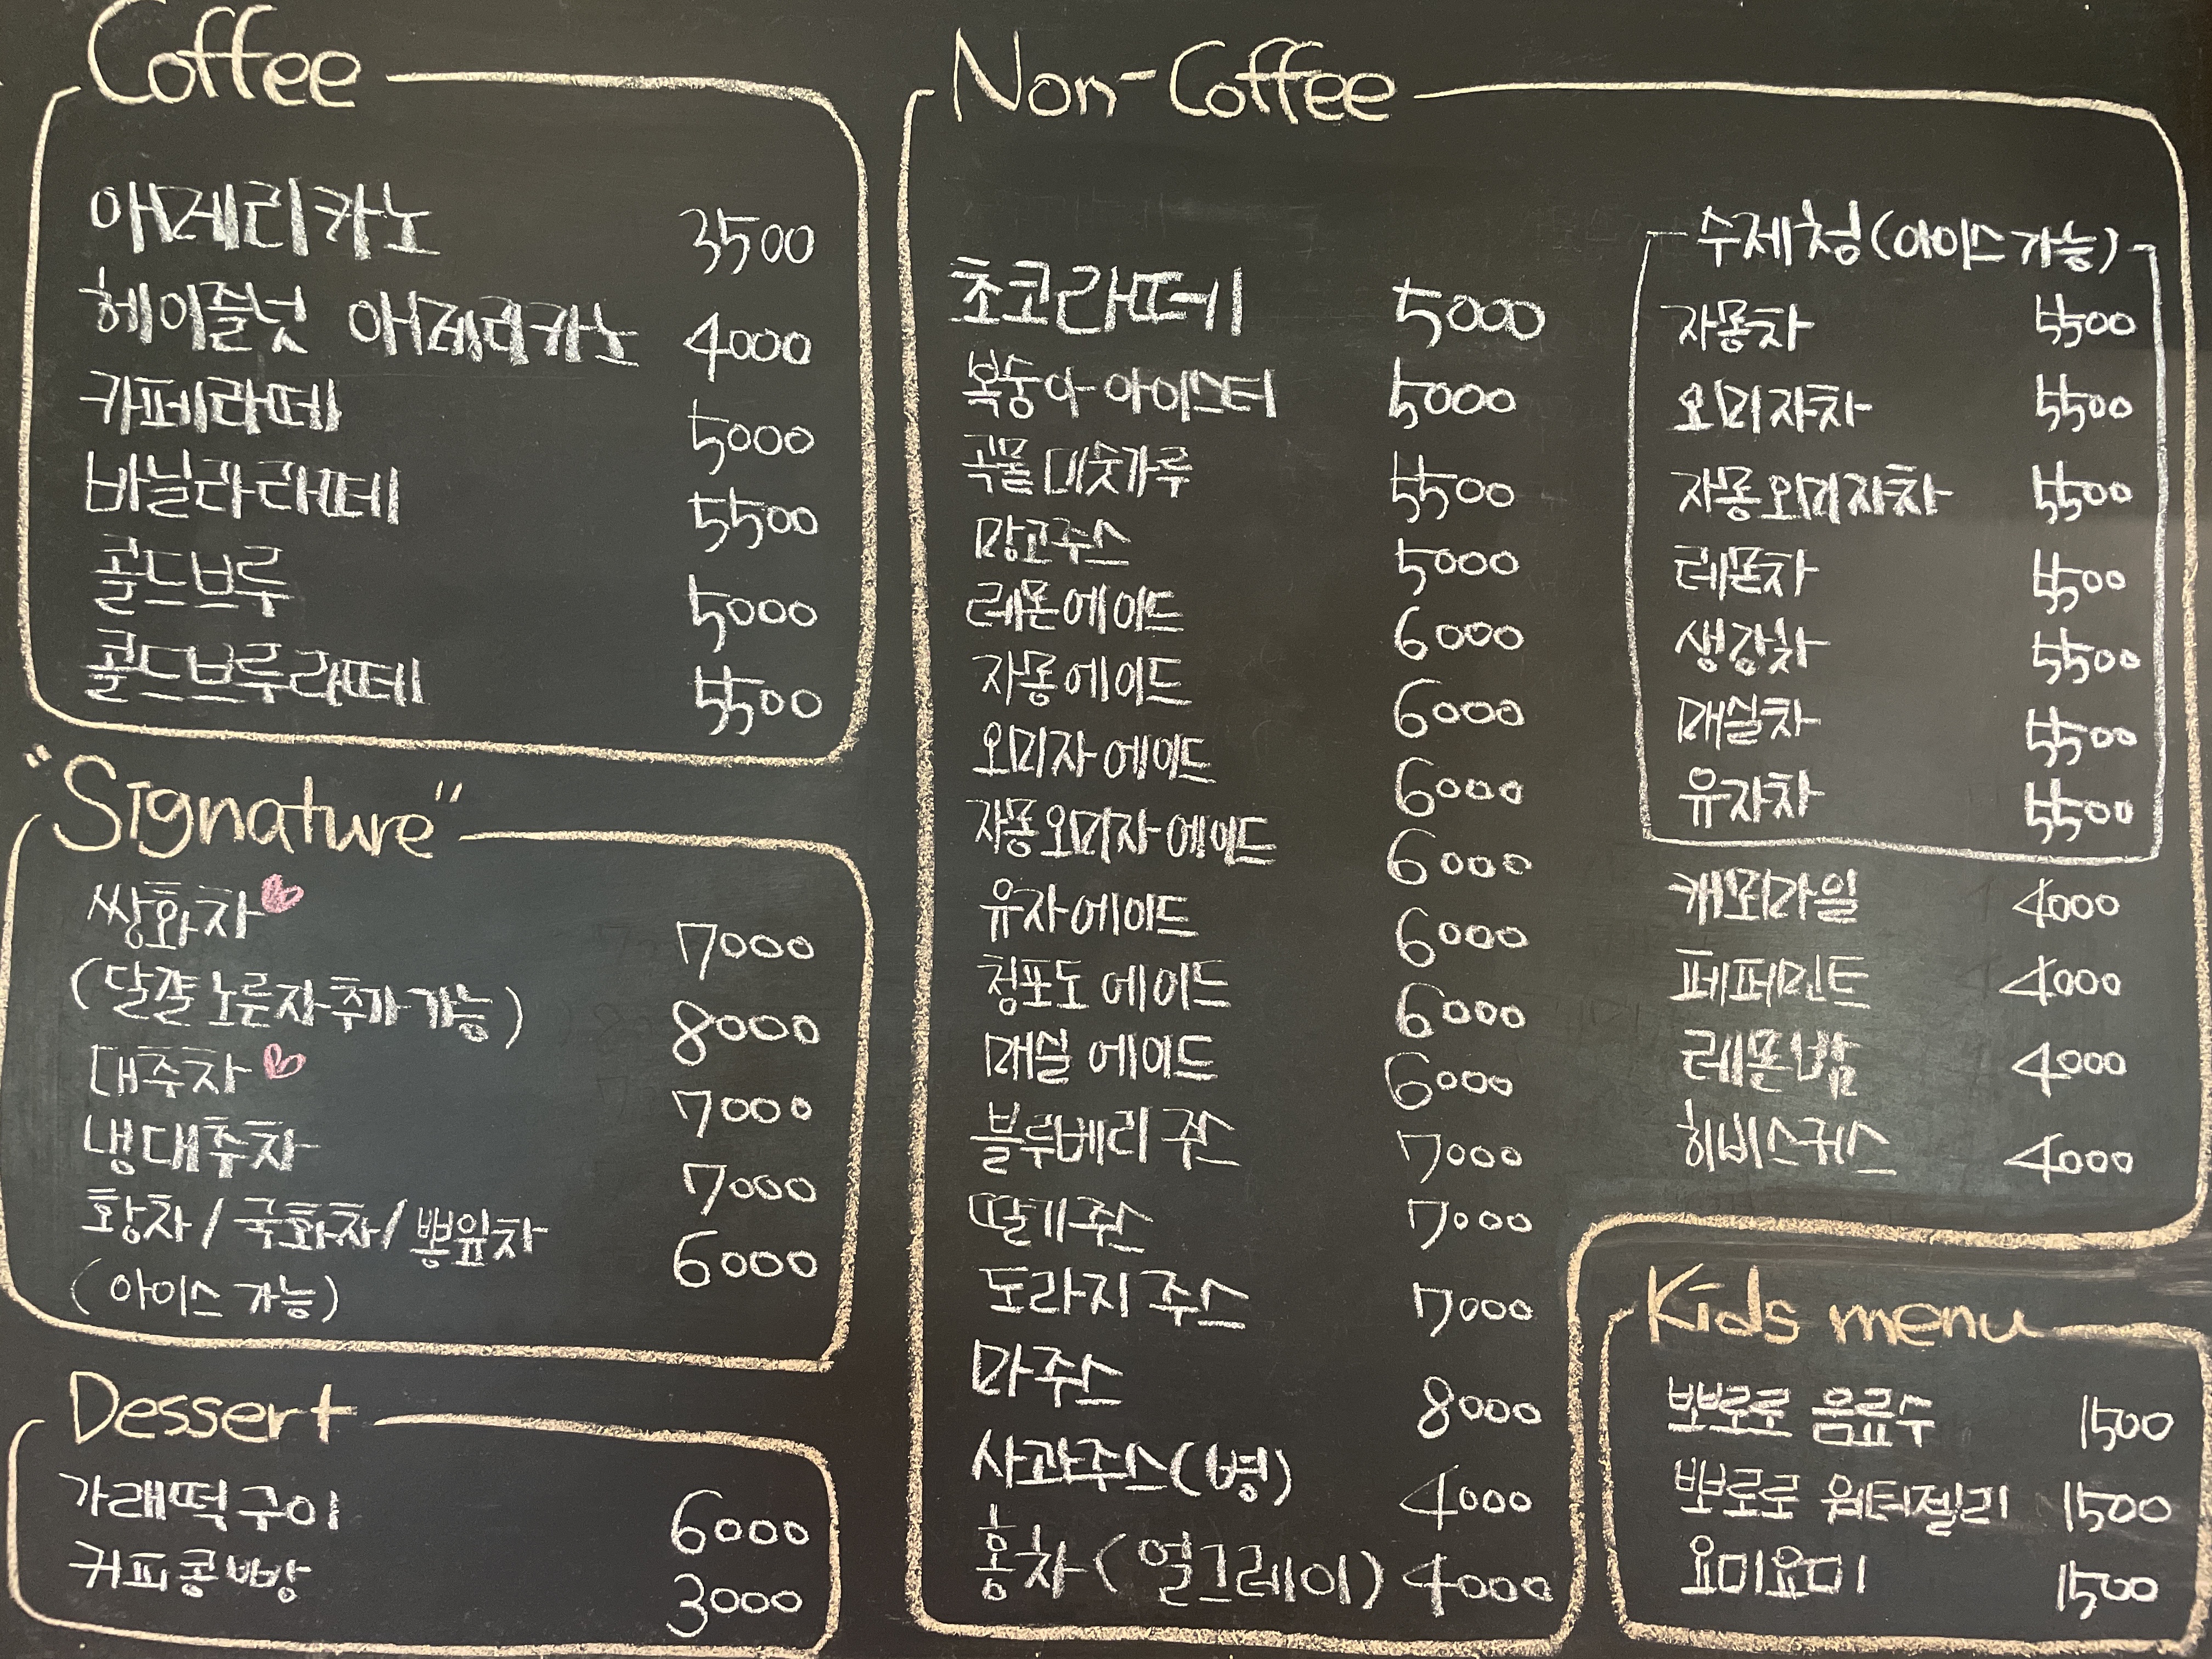 Coffee
아메리카노 3500
헤이즐넛 아메리카노 4000
카페라떼 5000
바닐라라떼 5500
콜드브루 5000
콜드브루라떼 5500
"Signature"
쌍화차 7000
(달걀노른자추가가능) 8000
대추차 7000
냉대추차 7000
황차/국화차/뽕잎차 6000
(아이스 가능)
Dessert
가래떡구이 6000
커피콩빵 3000
Non-Coffee
초코라떼 5000
복숭아 아이스티 5000
곡물 미숫가루 5500
망고주스 5000
레몬에이드 6000
자몽에이드 6000
오미자에이드 6000
자몽오미자에이드 6000
유자에이드 6000
청포도 에이드 6000
매실 에이드 6000
블루베리 주스 7000
딸기주스 7000
도라지 주스 7000
마주스 8000
사과주스(병) 4000
홍차(얼그레이) 4000
수제청(아이스 가능)
자몽차 5500
오미자차 5500
자몽오미자차 5500
레몬차 5500
생강차 5500
매실차 5500
유자차 5500
캐모마일 4000
페퍼민트 4000
레몬밤 4000
히비스커스 4000
Kids menu
뽀로로 음료수 1500
뽀로로 워터젤리 1500
요미요미 1500